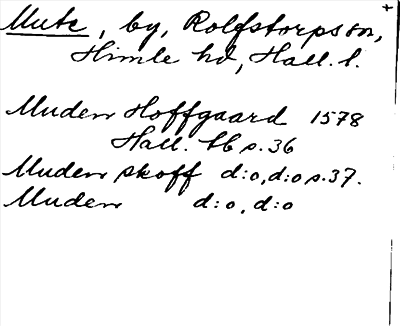 Mute, by, Rolfstorps sn,
Himle hd, Hall. l.
Muden Hoffgaard 1578
Hall. bb s. 36
Muden skoff d:o, d:o s. 37.
Muden d:o, d:o